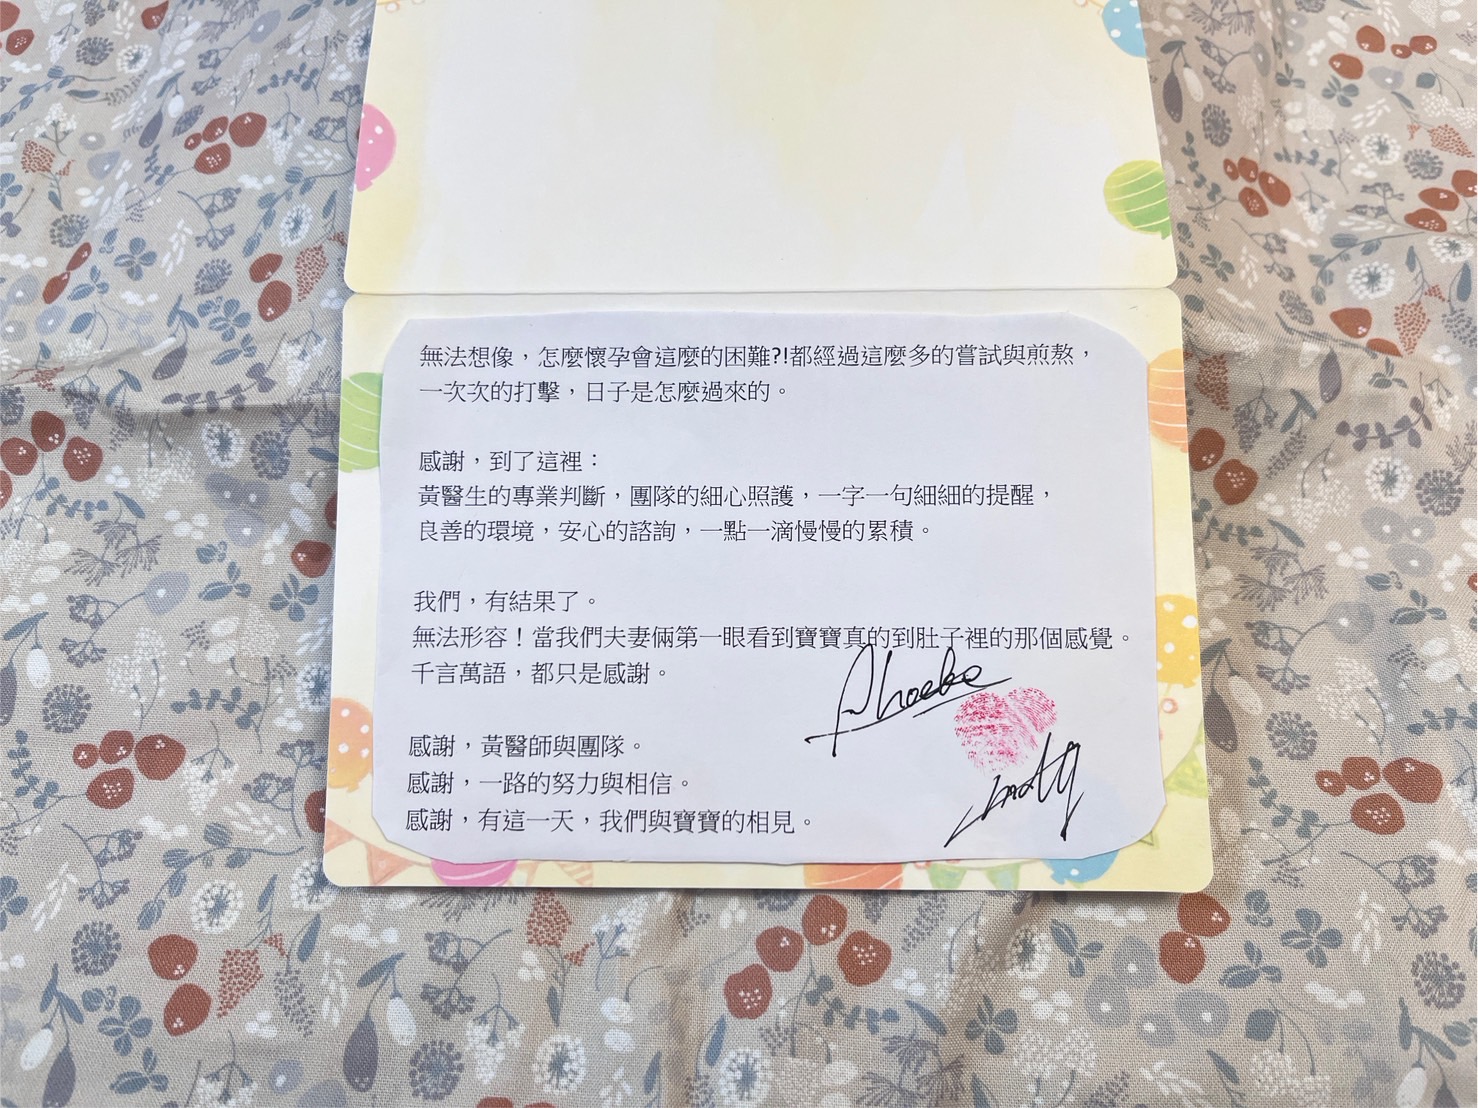 無法想像，怎麼懷孕會這麼的困難?!都經過這麼多的嘗試與煎熬，
一次次的打擊，日子是怎麼過來的。
感謝，到了這裡：
黃醫生的專業判斷，團隊的細心照護，一字一句細細的提醒，
良善的環境，安心的諮詢，一點一滴慢慢的累積。
我們，有結果了。
無法形容！當我們夫妻倆第一眼看到寶寶真的到肚子裡的那個感覺。
千言萬語，都只是感謝。
Phoebe
感謝，黃醫師與團隊。
感謝，一路的努力與相信。
感謝，有這一天，我們與寶寶的相見。